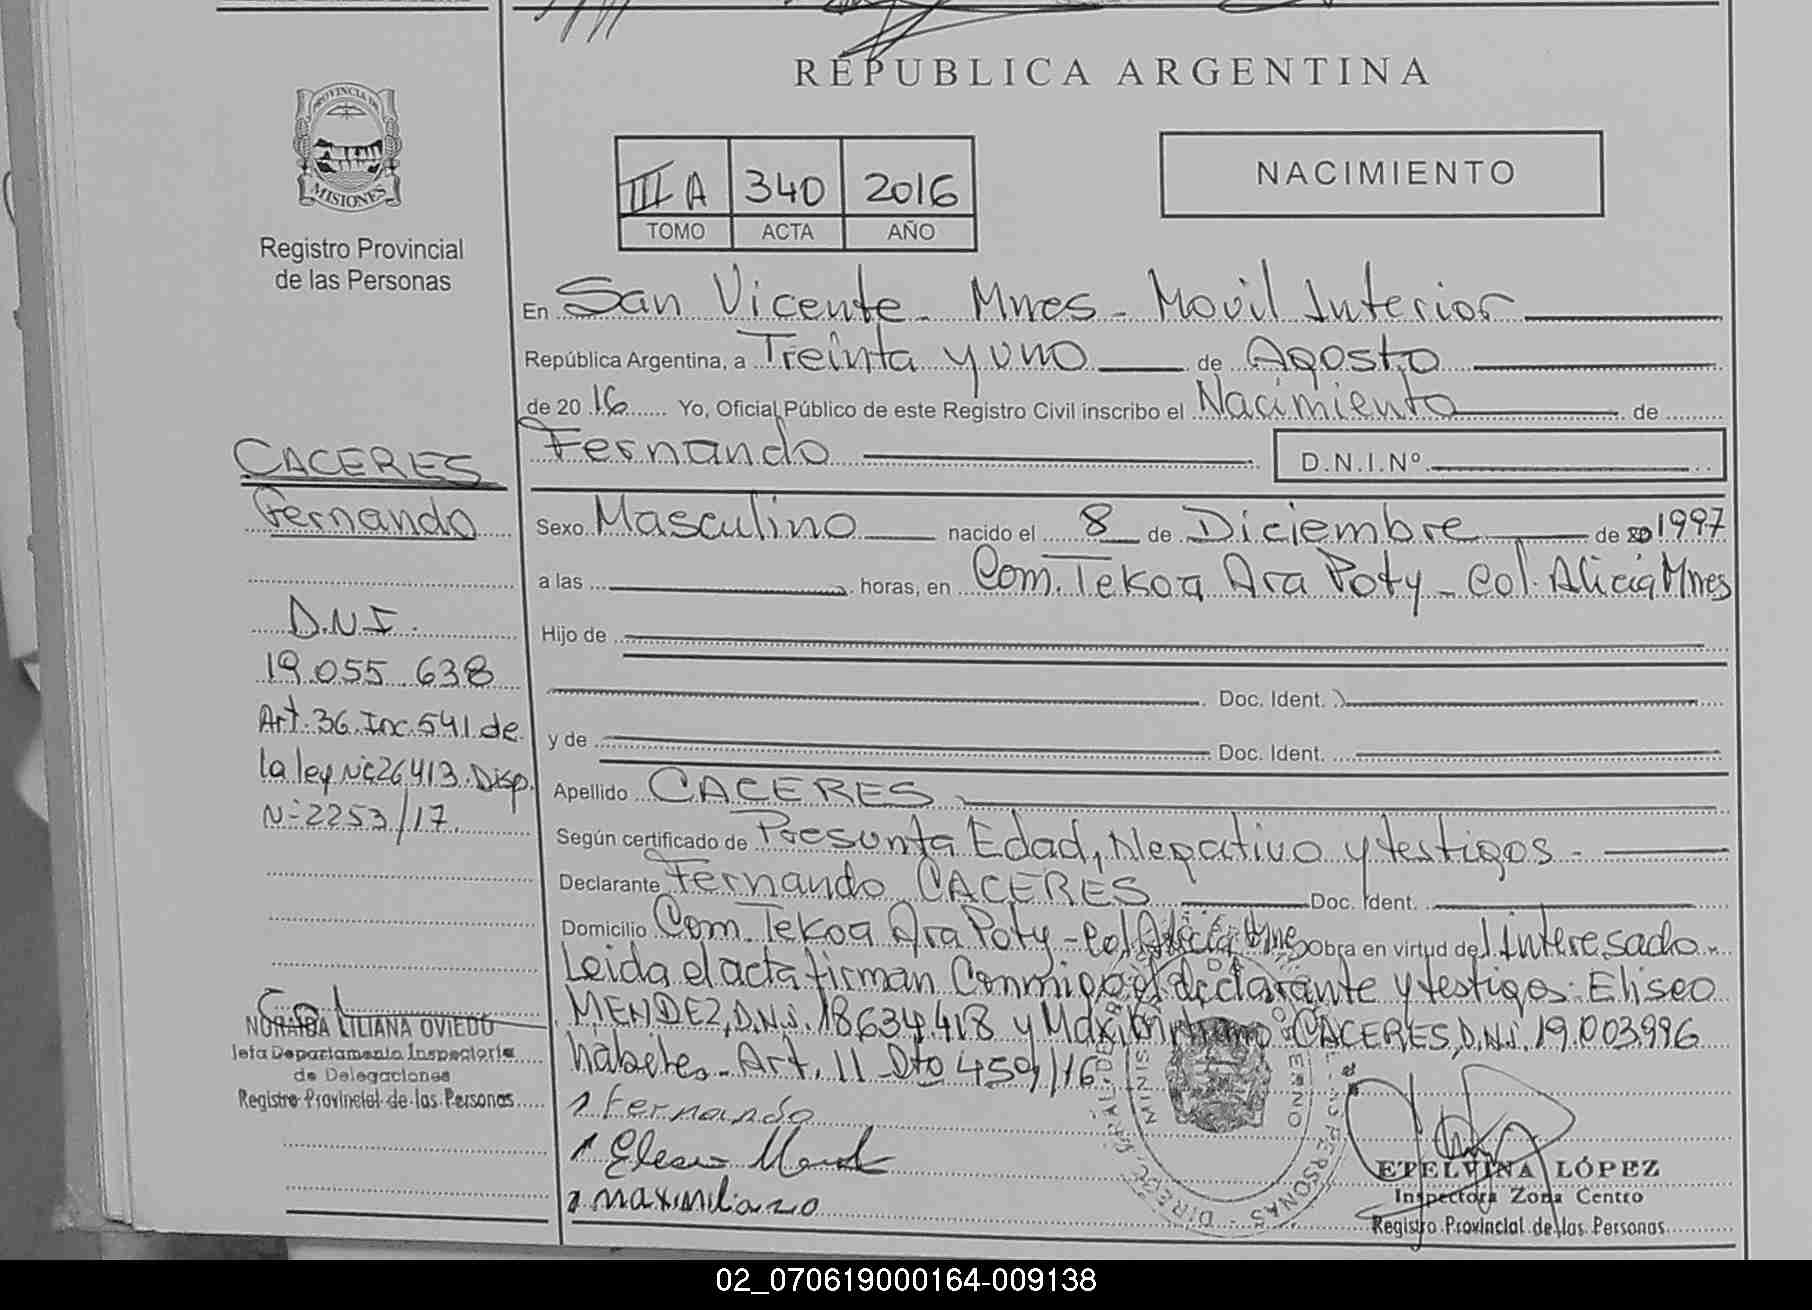 REPUBLICA ARGENTINA
PROVINCIA DE
MISIONES
Registro Provincial
de las Personas
III A 340 2016
TOMO ACTA AÑO
NACIMIENTO
En San Vicente - Mnes - Movil Interior
República Argentina, a Treinta y uno de Agosto
de 20 16 Yo, Oficial Público de este Registro Civil inscribo el Nacimiento de
Fernando D.N.I.Nº
CACERES
Fernando
D.N.I.
19.055.638
Art. 36 Inc. 541 de
la ley Nº 26413. Disp.
Nº 2253/17
NORAIDA LILIANA OVIEDO
Jefa Departamento Inspectoría
de Delegaciones
Registro Provincial de las Personas
Sexo Masculino nacido el 8 de Diciembre de 20 1997
a las horas, en Com. Tekoa Ara Poty - Col. Alicia Mnes
Hijo de
Doc. Ident.
y de Doc. Ident.
Apellido CACERES
Según certificado de Presunta Edad, Negativo y testigos -
Declarante Fernando CACERES Doc. Ident.
Domicilio Com. Tekoa Ara Poty - Col. Alicia Mnes Obra en virtud del Interesado
Leida el acta firman Conmigo el declarante y testigos: Eliseo
MENDEZ, D.N.I. 18.634.418 y Maximiliano CACERES, D.N.I. 19.003.996
habiles - Art. 11 Dto 459/16
Fernando
Eliseo Mendez
maximiliano
ETELVINA LÓPEZ
Inspectora Zona Centro
Registro Provincial de las Personas
02_070619000164-009138